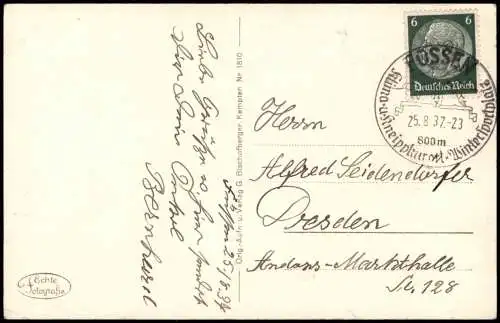 Liebe Grüße u.
von Dein Onkel
Bernhard
Füssen 25./8.37
Orig.-Aufn. u. Verlag G. Bischofberger, Kempten Nr. 1810
Echte
Fotografie
6 6
Deutsches Reich
FÜSSEN
25.8.37.-23
800 m
Klima-u.Kneippkurort.Wintersportplatz
Herrn
Alfred Seidendorfer
Dresden
Antons-Markthalle
128